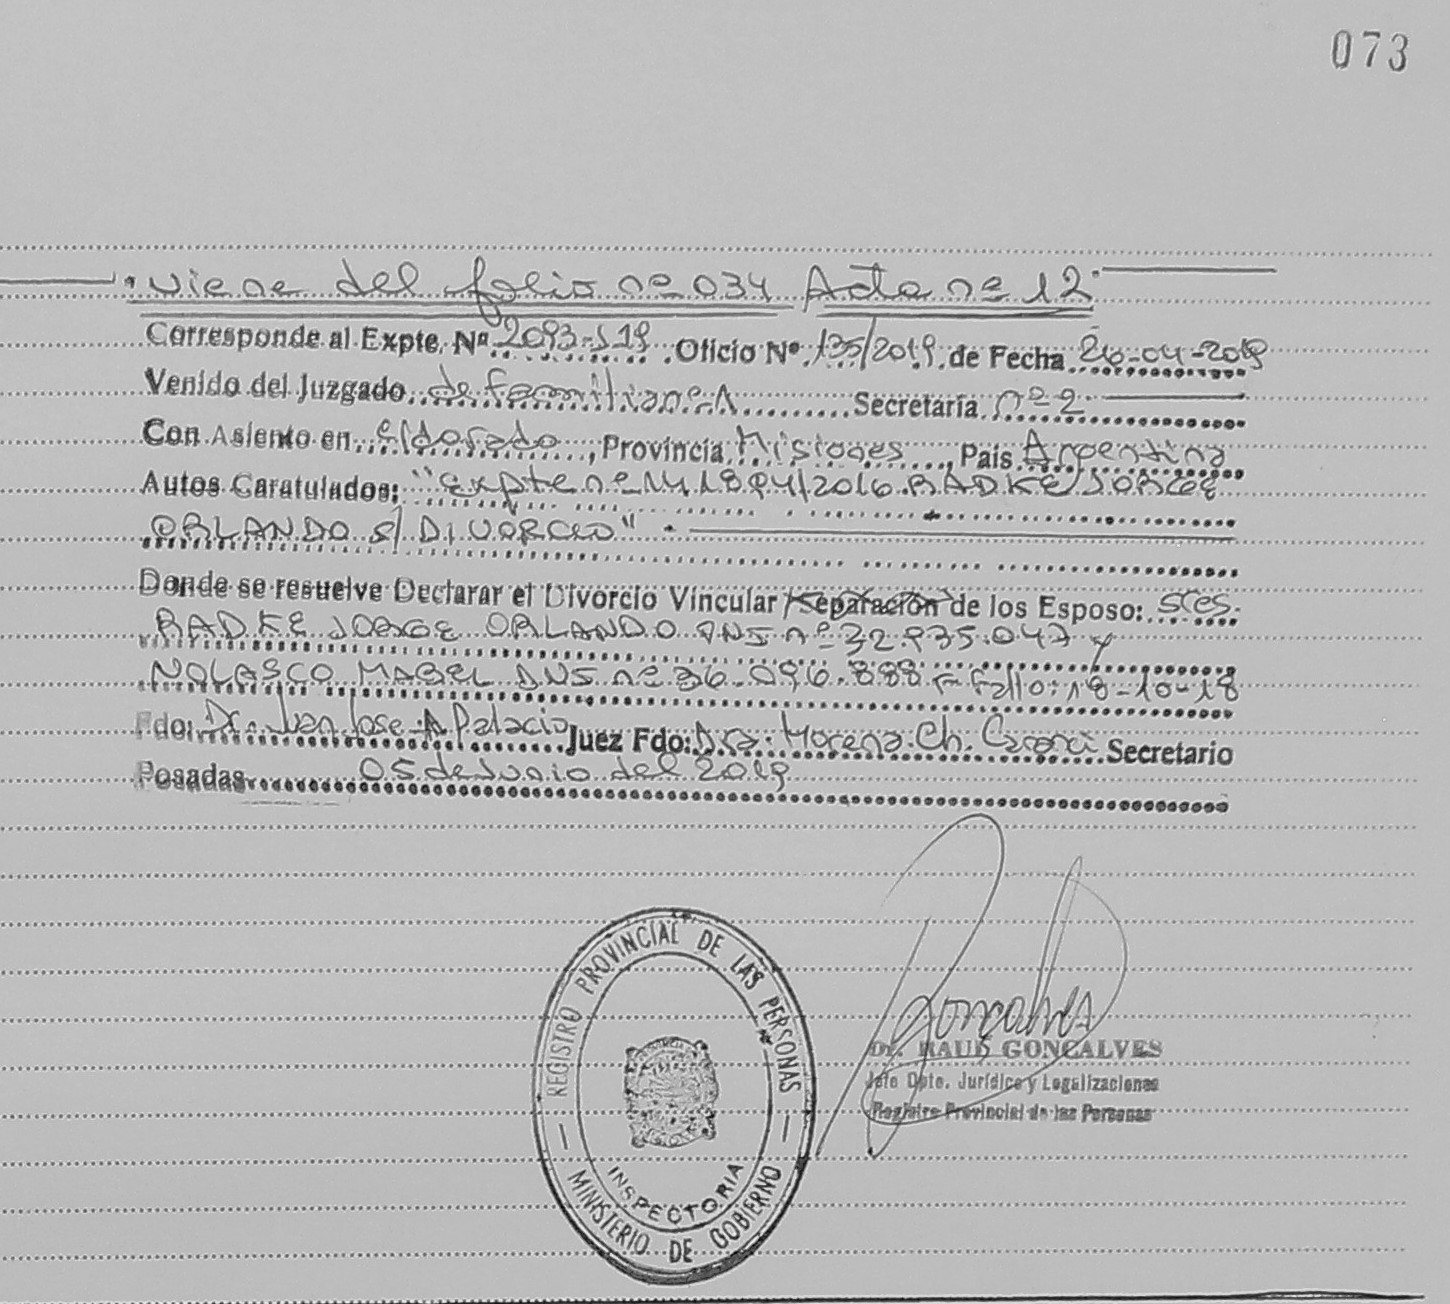 073
"Viene del folio nº 034 Acta nº 12"
Corresponde al Expte. Nº 2093-J-19 Oficio Nº 135/2019 de Fecha 26-04-2019
Venido del Juzgado de familia nº 1 Secretaría nº 2
Con Asiento en Eldorado, Provincia Misiones, País Argentina
Autos Caratulados: "Expte nº 141894/2016 RADKE JORGE
ORLANDO s/ DIVORCIO"
Donde se resuelve Declarar el Divorcio Vincular / Separación de los Esposo: sres.
RADKE JORGE ORLANDO DNI nº 32.935.047 y
NOLASCO MABEL DNI nº 36.096.888 Fallo: 18-10-18
Fdo: Dr. Juan Jose A Palacio Juez Fdo: Dra. Morena Ch. Secretario
Posadas 05 de Junio del 2019
REGISTRO PROVINCIAL DE LAS PERSONAS
INSPECTORIA
MINISTERIO DE GOBIERNO
Dr. RAUL GONCALVES
Jefe Dpto. Jurídico y Legalizaciones
Registro Provincial de las Personas